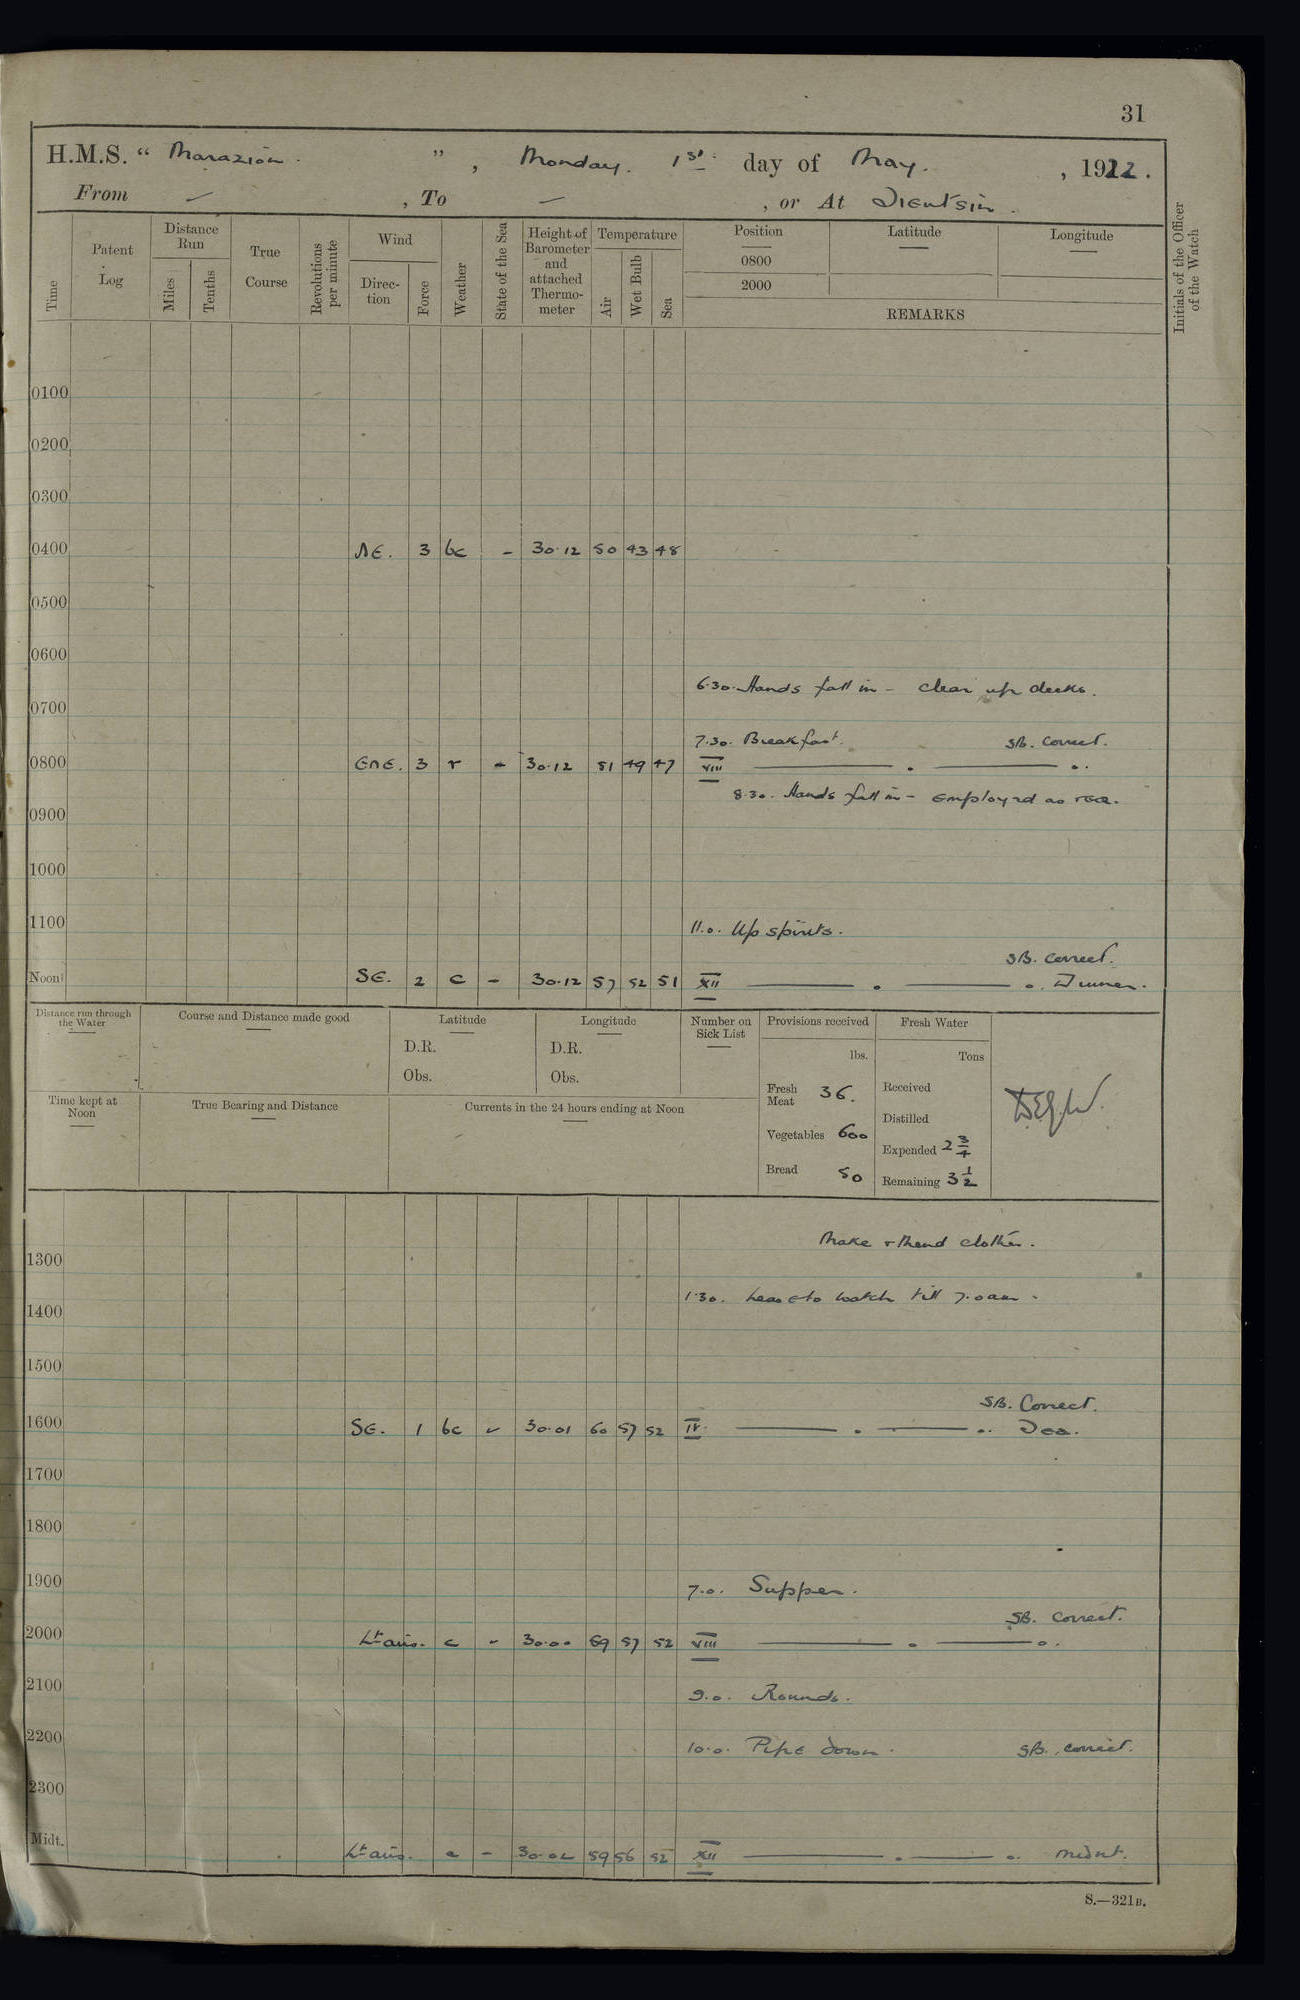 31
H.M.S. " Marazion. ", Monday. 1st day of May. , 1922.
From — , To — , or At Tientsin.
Time
Patent Log
Distance Run
Miles
Tenths
True Course
Revolutions per minute
Wind
Direction
Force
Weather
State of the Sea
Height of Barometer and attached Thermometer
Temperature
Air
Wet Bulb
Sea
Position
0800
2000
Latitude
Longitude
REMARKS
Initials of the Officer of the Watch
0100
0200
0300
0400 NE. 3 bc - 30.12 50 43 48
0500
0600
6.30. Hands fall in - clear up decks.
0700
7.30. Breakfast. SB. Correct.
0800 ENE. 3 r - 30.12 51 49 47 VIII
8.30. Hands fall in - employed as req.
0900
1000
1100 11.0. Up spirits.
SB. Correct.
Noon SE. 2 c - 30.12 57 52 51 XII Dinner.
Distance run through the Water
Course and Distance made good
Latitude
D.R.
Obs.
Longitude
D.R.
Obs.
Number on Sick List
Provisions received
lbs.
Fresh Meat 36.
Vegetables 600
Bread 50
Fresh Water
Tons
Received
Distilled
Expended 2 3/4
Remaining 3 1/2
Time kept at Noon
True Bearing and Distance
Currents in the 24 hours ending at Noon
Make & Mend clothes.
1300
1.30. Leave to watch till 7.0am.
1400
1500
SB. Correct.
1600 SE. 1 bc - 30.01 60 57 52 IV. Tea.
1700
1800
1900 7.0. Supper.
SB. Correct.
2000 Lt airs. c - 30.00 59 57 52 VIII
2100 9.0. Rounds.
2200 10.0. Pipe down. SB. correct.
2300
Midt. Lt airs. c - 30.02 59 56 52 XII Midnt.
S.—321B.